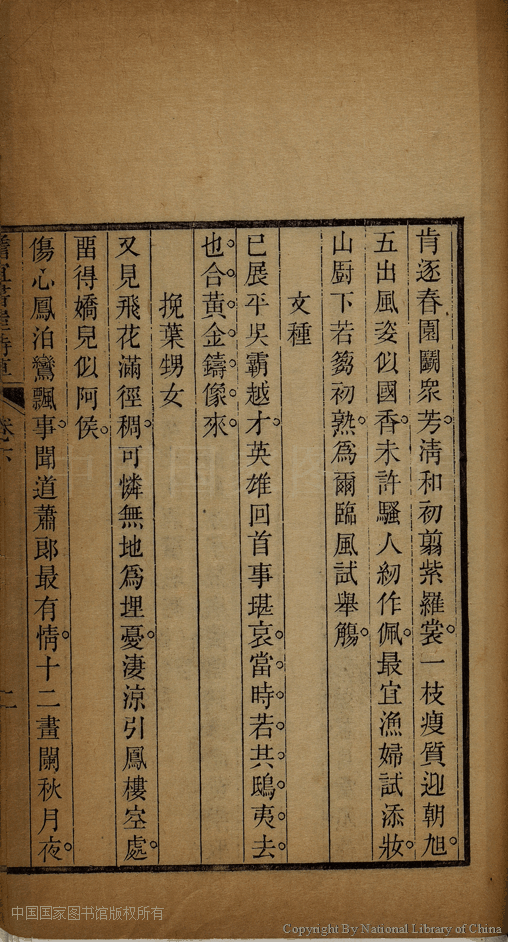 肯逐春園鬭衆芳淸和初翦紫羅裳一枝瘦質迎朝旭
五出風姿似國香未許騷人紉作佩最宜漁婦試添妝
山廚下若芻初熟爲爾臨風試舉觴
文種
已展平吳霸越才英雄回首事堪哀當時若共鴟夷去
也合黃金鑄像來
挽葉甥女
又見飛花滿徑稠可憐無地爲埋憂淒涼引鳳樓空處
畱得嬌兒似阿侯
傷心鳳泊鸞飄事聞道蕭郎最有情十二畫闌秋月夜
卷六
中国国家图书馆版权所有
Copyright By National Library of China